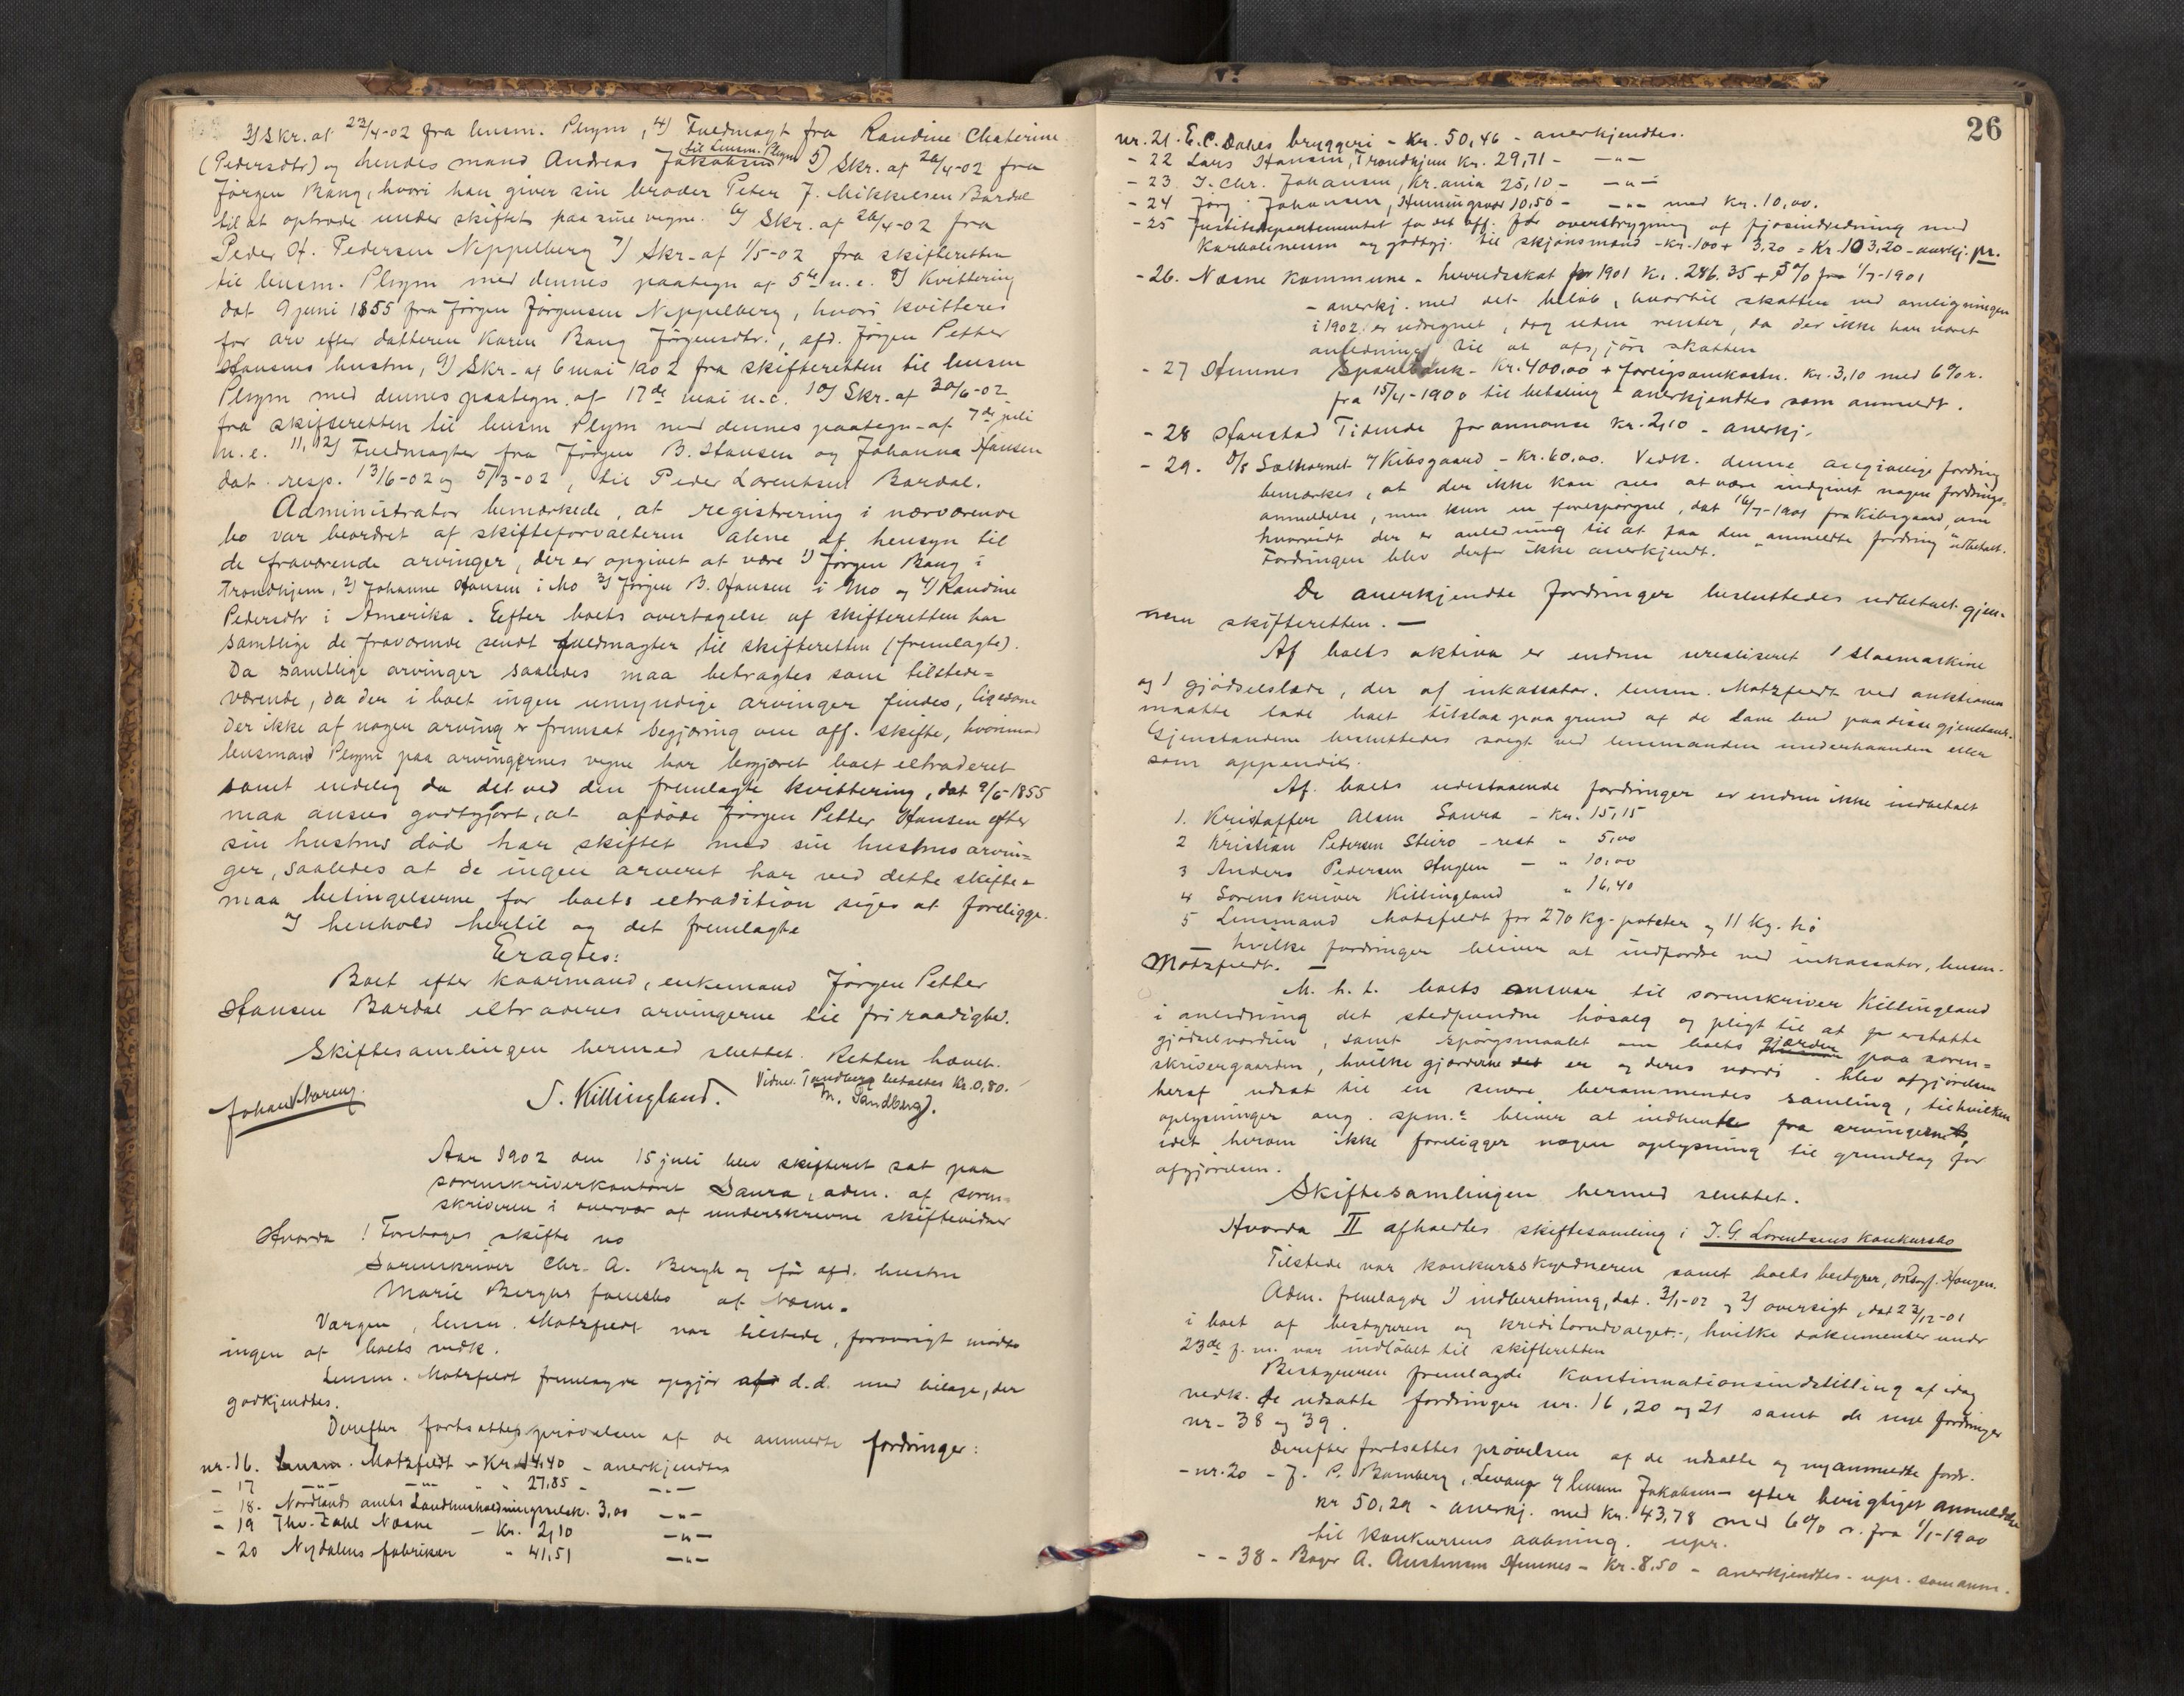 3) Skr. af 23/4-02 fra lensm. Plrym, 4) Fuldmagt fra Randine Chaterine
(Pedersdtr) og hendes mand Andreas Jakobsen til Lensm. Plrym 5) Skr. af 26/4-02 fra
Jørgen Bang, hvori han giver sin broder Peter J. Mikkelsen Bardal
til at optræde under skiftet paa sine vegne. 6) Skr. af 26/4-02 fra
Peder H. Pedersen Neppelberg 7) Skr. af 1/5-02 fra skifteretten
til lensm. Plrym med dennes paategn af 5te n.e. 8) Kvittering
dat 9 juni 1855 fra Jørgen Jørgensen Neppelberg, hvori kvitteres
for arv efter datteren Karen Bang Jørgensdtr., afd. Jørgen Petter
Hansens hustru, 9) Skr. af 6 mai 1902 fra skifteretten til lensm
Plrym med dennes paategn. af 17de mai n.e. 10) Skr. af 30/6-02
fra skifteretten til lensm Plrym med dennes paategn. af 7de juli
n.e. 11, 12) Fuldmagter fra Jørgen B. Hansen og Johanna Hansen
dat. resp. 13/6-02 og 5/3-02, til Peder Lorentsen Bardal.
Administrator bemærkede, at registrering i nærværende
bo var beordret af skifteforvalteren alene af hensyn til
de fraværende arvinger, der er opgivet at være 1) Jørgen Bang i
Trondhjem, 2) Johanne Hansen i Mo 3) Jørgen B. Hansen i Mo og 4) Randine
Pedersdtr i Amerika. Efter boets overtagelse af skifteretten har
samtlige de fraværende sendt fuldmagter til skifteretten (fremlagte).
Da samtlige arvinger saaledes maa betragtes som tilstede-
værende, da der i boet ingen umyndige arvinger findes, ligesom
der ikke af nogen arving er fremsat begjæring om off. skifte, hvorimod
lensmand Plrym paa arvingernes vegne har begjæret boet extraderet
samt endelig da det ved den fremlagte kvittering, dat 9/6-1855
maa ansees godtgjort, at afdøde Jørgen Petter Hansen efter
sin hustrus død har skiftet med sin hustrus arvin-
ger, saaledes at de ingen arveret har ved dette skifte -
maa betingelserne for boets extradition siges at foreligge.
I henhold hertil og det fremlagte
Eragtes:
Boet efter kaarmand, enkemand Jørgen Petter
Hansen Bardal extraderes arvingerne til fri raadighed.
Skiftesamlingen hermed sluttet. Retten hævet.
Vidne. Sandberg betaltes Kr. 0,80.
S. Killingland. M. Sandberg.
Aar 1902 den 15 juli blev skifteret sat paa
sorenskriverkontoret Saura, adm. af soren-
skriveren i overvær af underskrevne skiftevidner
Hvorda I Foretoges skifte no
Sorenskriver Chr. A. Bergh og før afd. hustru
Marie Berghs fællesbo af Næsne.
Værgen, lensm. Motzfeldt var tilstede, forøvrigt mødte
ingen af boets vedk.
Lensm. Motzfeldt fremlagde opgjør d.d. med bilage, der
godkjendtes.
Derefter fortsattes prøvelsen af de anmeldte fordringer:
nr. 16. Lensm. Motzfeldt - Kr. 14,40 - anerkjendtes
- 17 -"- -"- " 27,85 - -"-
- 18. Nordlands amts Landhusholdningsselsk. 3,00 -"-
- 19 Thv. Zahl Næsne - Kr. 2,10 -"-
- 20 Nydalens fabriker " 41,51 -"-
26
nr. 21. E.C. Dahls bryggeri - Kr. 50,46 - anerkjendtes.
- 22 Lars Hansen, Trondhjem Kr. 29,71 - -"-
- 23 J. Chr. Johansen, Kr.ania 25,10 - -"-
- 24 Jørg. Johansen, Henningsvær 10,50 - -"- med Kr. 10,00.
- 25 Justitsdepartementet for det off. for overstrygning af fjøsindredning med
Karbolineum og godtgj. til skjønsmænd - Kr. 100 + 3,20 = Kr. 103,20 - anerkj. pr.
- 26. Næsne kommune - herredsskat for 1901 Kr. 286.35 + 5% fra 1/7-1901
- anerkj. med det beløb, hvortil skatten ved omligningen
i 1902 er udregnet, dog uden renter, da der ikke har været
anledning til at afgjøre skatten
- 27 Hemnes Sparebank - Kr. 400,00 + foreigsomkostn. Kr. 3,10 med 6% r.
fra 15/4-1900 til betaling - anerkjendtes som anmeldt.
- 28 Harstad Tidende for annonse Kr. 2,10 - anerkj.
- 29. D/S Salthornet v/ Kibsgaard - Kr. 60,00. Vedk. denne angivelige fordring
bemærkes, at der ikke kan sees at være indgivet nogen fordrings-
anmeldelse, men kun en forespørgsel, dat 16/7-1901 fra Kibsgaard, om
hvorvidt der er anledning til at faa den "anmeldte fordring" udbetalt.
Fordringen blev derfor ikke anerkjendt.
De anerkjendte fordringer besluttedes udbetalt gjen-
nem skifteretten. -
Af boets aktiva er endnu urealiseret 1 slaamaskine
og 1 gjødselslæde, der af inkassator, lensm. Motzfeldt ved auktionen
maatte lade boet tilslaa paa grund af de lave bud paa disse gjenstande.
Gjenstandene besluttedes solgt ved lensmanden underhaanden eller
som appendix.
Af boets udestaaende fordringer er endnu ikke indbetalt
1. Kristoffer Olsen Saura - Kr. 15,15
2 Kristian Pedersen Steiro - rest " 5,00
3 Anders Pedersen Huglen - " 10,00
4 Sorenskriver Killingland " 16,40
5 Lensmand Motzfeldt for 270 kg. poteter og 11 kg. hø
- hvilke fordringer bliver at indfordre ved inkassator, lensm.
Motzfeldt. -
M. h. t. boets ansvar til sorenskriver Killingland
i anledning det stedfundne høsalg og pligt til at erstatte
gjødselværdien, samt spørgsmaalet om boets gjærder paa soren-
skrivergaarden, hvilke gjærderne er og deres værdi - blev afgjørelsen
heraf udsat til en senere berammendes samling, til hvilken
oplysninger ang. spm.et bliver at indhente fra arvingerne,
idet herom ikke foreligger nogen oplysning til grundlag for
afgjørelsen.
Skiftesamlingen hermed sluttet.
Hvorda II afholdtes skiftesamling i J. G. Lorentsens konkursbo
Tilstede var konkursskyldneren samt boets bestyrer, Haugen.
Adm. fremlagde 1) indberetning, dat. 3/1-02 og 2) oversigt, dat 23/12-01
i boet af bestyreren og kreditorudvalget, hvilke dokumenter under
23de f. m. var indløbet til skifteretten
Bestyreren fremlagde kontinuationsindstilling af idag
vedk. de udsatte fordringer nr. 16, 20 og 21 samt de nye fordringer
nr. 38 og 39.
Derefter fortsattes prøvelsen af de udsatte og nyanmeldte fordr.
- nr. 20 - J. P. Bamberg, Levanger v/ lensm Jakobsen - efter berigtiget anmeldelse
Kr 50,29 - anerkj. med Kr. 43,78 med 6% r. fra 1/1-1900
til konkursens aabning. upr.
- - 38 - Bager A. Hemnes - Kr. 8,50 - anerkjendtes - upr. som anm.